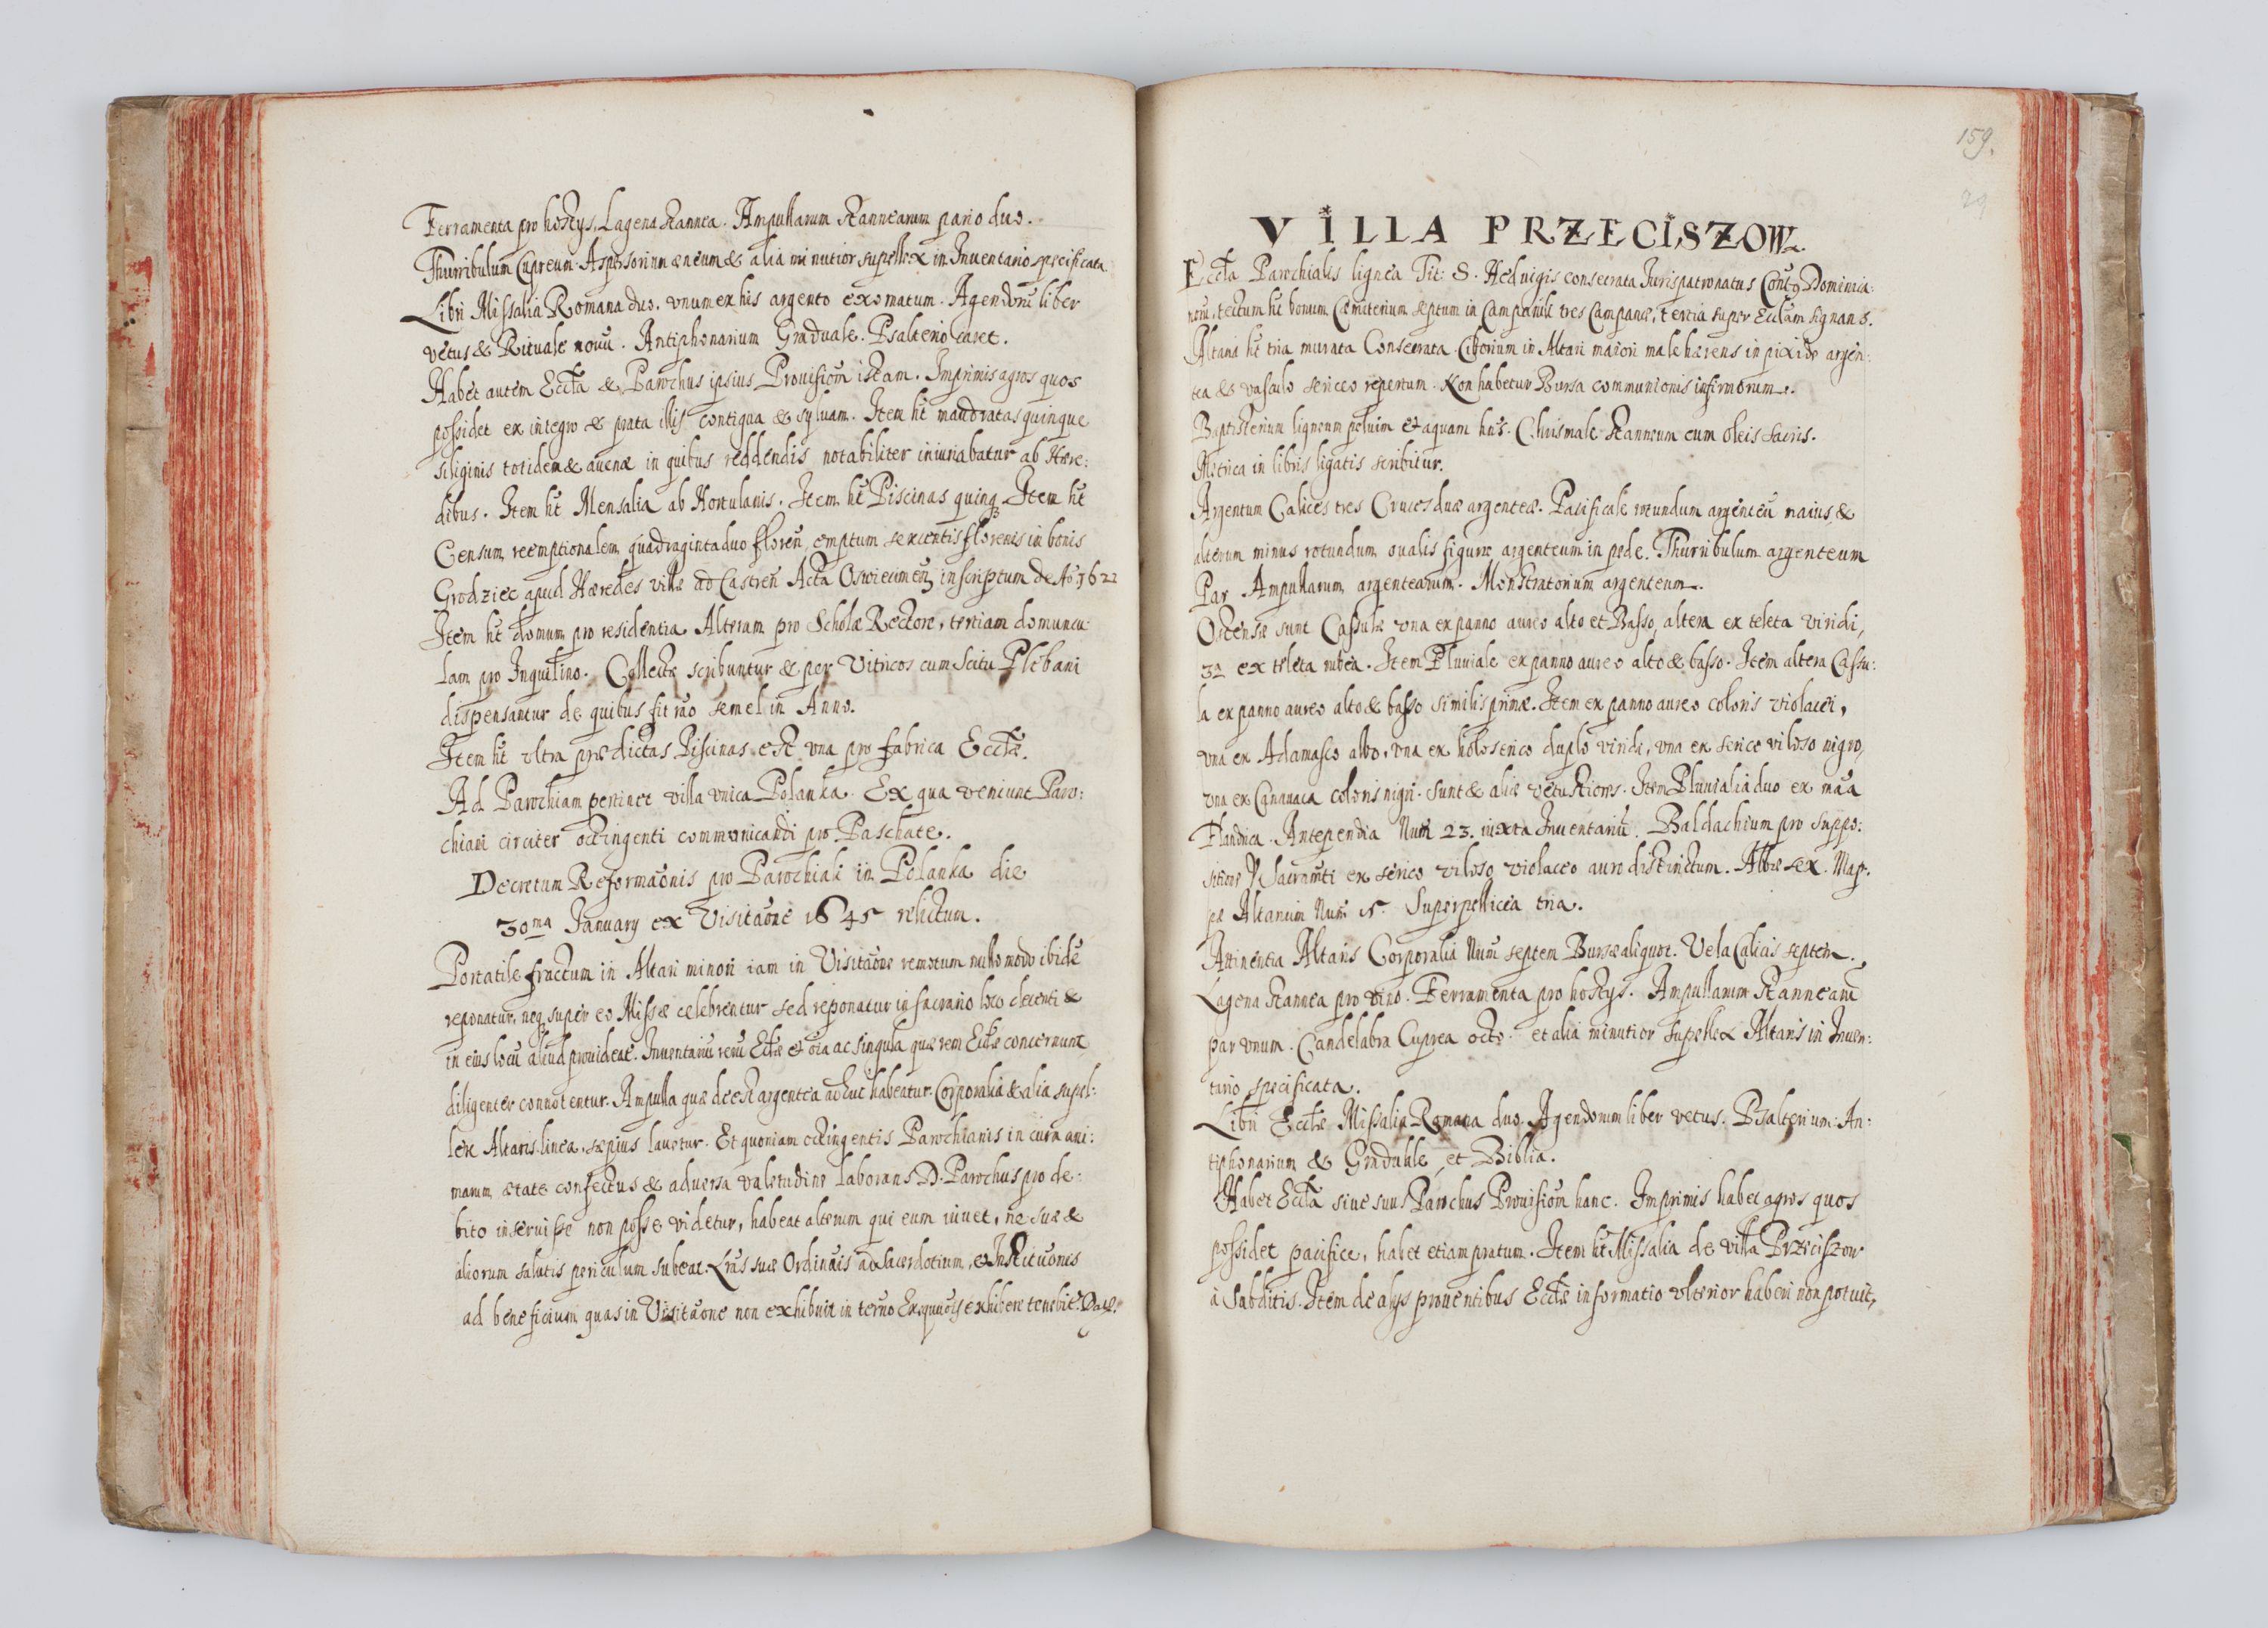 Ferramenta pro hostys, Lagena stannea. Ampullarum stannearum paria duo.
Thurribulum Cupreum. Aspersorium æneum & alia minutior supellex in Inuentario specificata.
Libri Missalia Romana duo. vnum ex his argento exornatum. Agendorũ liber
vetus & Rituale nouũ. Antiphonarium Graduale. Psalterio caret.
Habet autem Eccła & Parochus ipsius Prouisiom̃ istam. Imprimis agros quos
possidet ex integro & prata illis contigua & syluam. Item ht̃ maudratas quinque
siliginis totidem & auenæ in quibus reddendis notabiliter iniuriabatur ab Hære:
dibus. Item ht̃ Mensalia ab Hortulanis. Item ht̃ Piscinas quinq̨ Item ht̃
Censum reemptionalem quadraginta duo floren̄ emptum sexcentis florenis in bonis
Grodziec apud Hæredes villæ ad Castren̄ Acta Oswiecimen̄ inscriptum de Aõ 1622
Item ht̃ domum pro residentia Alteram pro Scholæ Rectore, tertiam domuncu:
lam pro Inquilino. Collectæ scribuntur & per Vitricos cum Scitu Plebani
dispensantur de quibus fit rãõ semel in Anno.
Item ht̃ vltra prædictas Piscinas est vna pro fabrica Eccłæ.
Ad Parochiam pertinet villa vnica Polanka. Ex qua veniunt Paro:
chiani circiter octingenti communicandi pro Paschate.
Decretum Reformãonis pro Parochiali in Polanka die
30ma January ex Visitãone 1645 relictum.
Portatile fractum in Altari minori iam in Visitãone remotum nullo modo ibidẽ
reponatur, neq̨ super eo Missæ celebrentur sed reponatur in sacrario loco decenti &
in eius locũ aliud prouideat̃. Inuentariũ rerũ Eccłæ et oĩa ac singula quæ rem Eccłæ concernunt
diligenter connotentur. Ampulla quæ deest argentea adhuc habeatur. Corporalia & alia supel:
lex Altaris linea, sæpius lauetur. Et quoniam octingentis Parochianis in cura ani:
marum ætate confectus & aduersa valetudine laborans D. Parochus pro de:
bito inseruisse non posse videtur, habeat alterum qui eum iuuet, ne suæ &
aliorum salutis periculum subeat. Lrãs suæ Ordinãis ad Sacerdotium, & Institũonis
ad beneficium quas in Visitãone non exhibuit in termo Exequũois exhibere tenebit̃.
159.
29
VILLA PRZECISZOW.
Eccła Parochialis lignea Tit: S. Heduigis consecrata Iurispatronatus Dominica:
norũ, tectum ht̃ bonum Cæmiterium septum in Campanili tres Campanæ, tertia super Eccłam signans.
Altaria ht̃ tria murata Consecrata. Ciborium in Altari maiori male hærens in pixide argen:
tea & vasculo sericeo repertum. Non habetur Bursa communionis infirmorum.
Baptisterium ligneum peluim et aquam hñs. Chrismale stanneum cum oleis sacris.
Metrica in libris ligatis scribitur.
Argentum Calices tres Cruces duæ argenteæ. Pacificale rotundum argenteũ maius, &
alterum minus rotundum oualis figuræ argenteum in pede. Thurribulum argenteum
Par Ampullarum argentearum. Monstratorium argenteum.
Ostensæ sunt Casulæ vna ex panno aureo alto et Basso, altera ex teleta viridi,
3a ex teleta rubea. Item Pluuiale ex panno aureo alto & basso. Item altera Cassu:
la ex panno aureo alto & basso similis primæ. Item ex panno aureo coloris violacei,
vna ex Adamasco albo, vna ex holoserico duplo viridi, vna ex serico viloso nigro,
vna ex Canauaca coloris nigri. Sunt & aliæ vetustiores. Item Pluuialia duo ex mãa
Flandrica. Antependia Num̃ 23. iuxta Inuentariũ. Baldachium pro suppo:
sitione Sacramti ex serico viloso violaceo auro distinctum. Albæ sex. Map:
pæ Altarium Num̃ 15. Superpellicea tria.
Attinentia Altaris Corporalia Num̃ septem Bursæ aliquot. Vela Calicis septem.
Lagena stannea pro vino. Ferramenta pro hostys. Ampullarum stannearũ
par vnum. Candelabra Cuprea octo. et alia minutior supellex Altaris in Inuen:
tario specificata.
Libri Eccłæ Missalia Romana duo. Agendorum liber vetus. Psalterium. An:
tiphonarium & Graduale et Biblia.
Habet Eccła siue suus Parochus Prouisiom̃ hanc. Imprimis habet agros quos
possidet pacifice, habet etiam pratum. Item ht̃ Missalia de villa Przeciszow
a Subditis. Item de alys prouentibus Eccłæ informatio vlterior haberi non potuit,